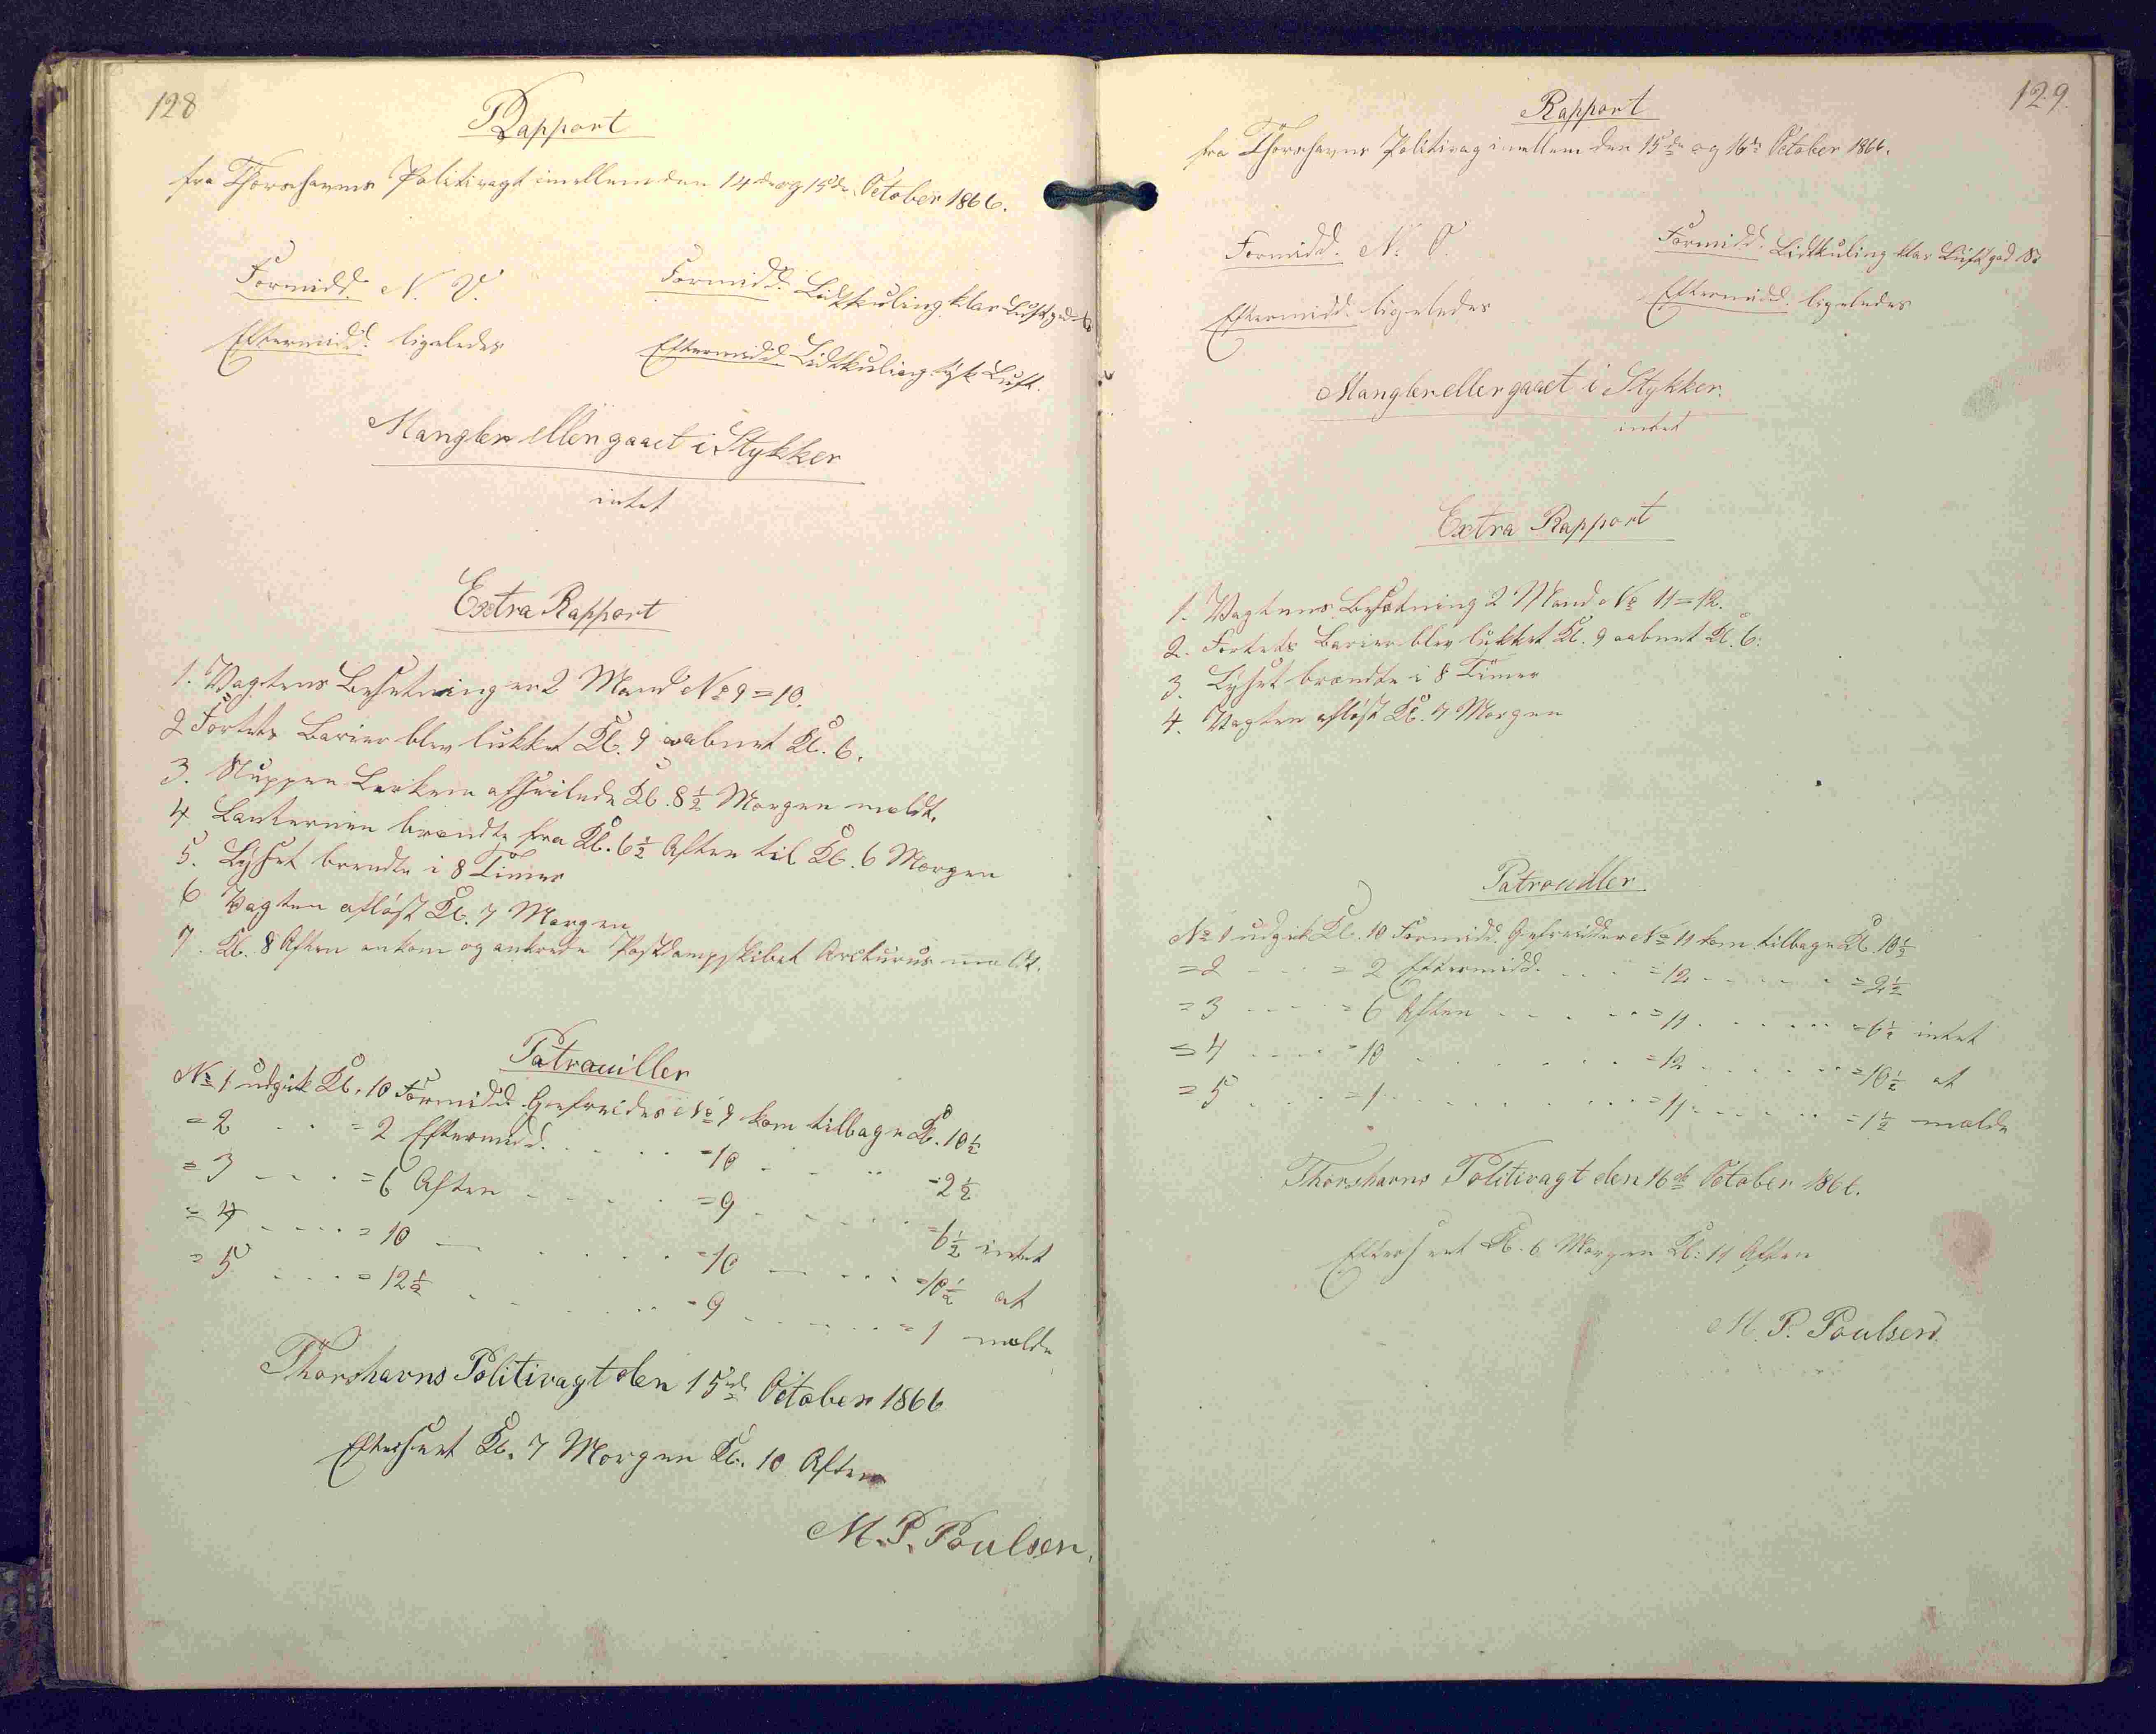 128
Rapport
fra Thorshavns Politivagt imellem den 14de og 15de October 1866.
Formidd. N. V.
Formidd. Lidtkuling klar Luft god
Eftermidd. ligeledes
Eftermidd. Lidtkuling tyk Luft.
Mangler eller gaaet i Stykker
intet
Extra Rapport
1. Vagtens Besetning er 2 Mand No 9 = 10.
2 Fortets Barier blev lukket Kl. 9 aabnet Kl. 6.
3. Sluppen Lerken afseilede Kl. 8½ Morgen meldt.
4 Lanternen brændte fra Kl. 6½ Aften til Kl. 6 Morgen
5. Lyset brendte i 8 Timer
6 Vagten afløst Kl. 7 Morgen
7. Kl. 8 Aften ankom og ankrede Postdampskibet Arcturus meldt.
Patrouiller
No 1 udgik Kl. 10 Formidd. Gefreider No 9 kom tilbage Kl. 10½
= 2 . . . = 2 Eftermidd. . . . . . = 10 . . . . . = 2½
= 3 . . . . = 6 Aften . . . . . = 9 . . . . . . = 6½ intet
= 4 . . . . = 10 . . . . . . = 10 . . . . . = 10½ at
= 5 . . . . = 12½ . . . . . . = 9 . . . . . . = 1 melde
Thorshavns Politivagt den 15de October 1866
Efterseet Kl. 7 Morgen Kl. 10 Aften
M. P. Poulsen.
129.
Rapport
fra Thorshavns Politivag imellem den 15de og 16de October 1866.
Formidd. N. O.
Formidd. Lidtkuling klar Luft god
Eftermidd. ligeledes
Eftermidd. ligeledes
Mangler eller gaaet i Stykker.
intet
Extra Rapport
1. Vagtens Besætning 2 Mand No 11 = 12.
2. Fortets Barier blev lukket Kl. 9 aabnet Kl. 6.
3. Lyset brændte i 8 Timer
4. Vagten afløst Kl. 7 Morgen
Patrouiller
No 1 udgik Kl. 10 Formidd. Gefreider No 11 kom tilbage Kl. 10½
= 2 . . . . = 2 Eftermidd. . . . . = 12 . . . . . = 2½
= 3 . . . . = 6 Aften . . . . . = 11 . . . . . = 6½ intet
= 4 . . . . = 10 . . . . . . = 12 . . . . . = 10½ at
= 5 . . . . = 1 . . . . . . . = 11 . . . . . = 1½ melde
Thorshavns Politivagt den 16de October 1866.
Efterseet Kl. 6 Morgen Kl. 11 Aften
M. P. Poulsen.